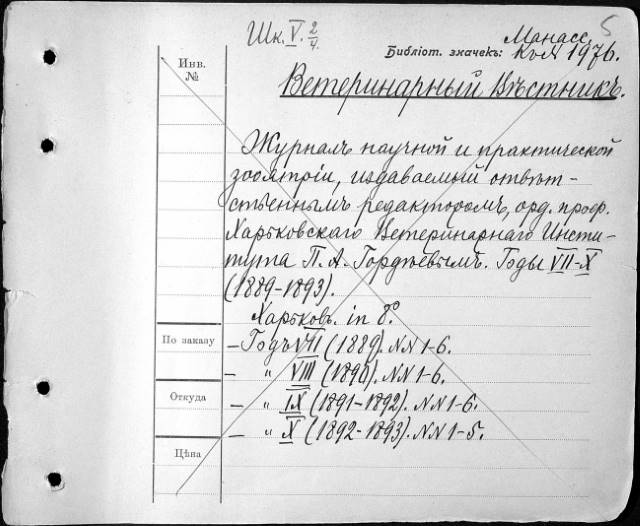 5
Шк. V. 2/4.
Манасс.
Библіот. значекъ: КъЛ 1976.
Инв.
№
Ветеринарный Вѣстникъ.
Журналъ научной и практической
зооятріи, издаваемый отвѣт-
ственнымъ редакторомъ, орд. проф.
Харьковскаго Ветеринарнаго Инсти-
тута П. А. Гордѣевымъ. Годы VII-X
(1889-1893).
Харьковъ. in 8°.
По заказу
— Годъ VII (1889). NN 1-6.
— " VIII (1890). NN 1-6.
Откуда
— " IX (1891-1892). NN 1-6.
— " X (1892-1893). NN 1-5.
Цѣна